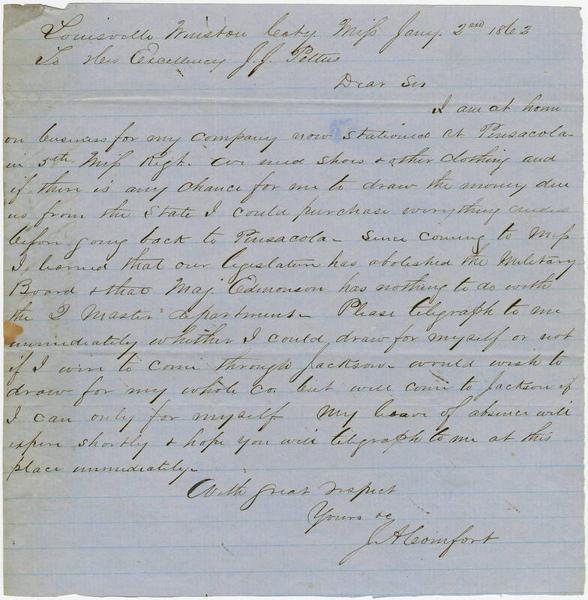 Louisville Winston Coty. Miss Jany. 2nd 1862
To His Excellency J. J. Pettus
Dear Sir
I am at home
on business for my company now stationed at Pensacola
in 5th Miss Regt. We need shoes & other clothing and
if there is any chance for me to draw the money due
us from the State I could purchase everything
before going back to Pensacola - Since coming to Miss
I learned that our legislature has abolished the Military
Board & that Maj Edmonson has nothing to do with
the Q Master department - Please telegraph to me
immediately whether I could draw for myself or not
if I were to come through Jackson - would wish to
draw for my whole co. but will come to Jackson if
I can only for myself My leave of absence will
expire shortly & hope you will telegraph to me at this
place immediately -
With great respect
Yours &c
J A Comfort